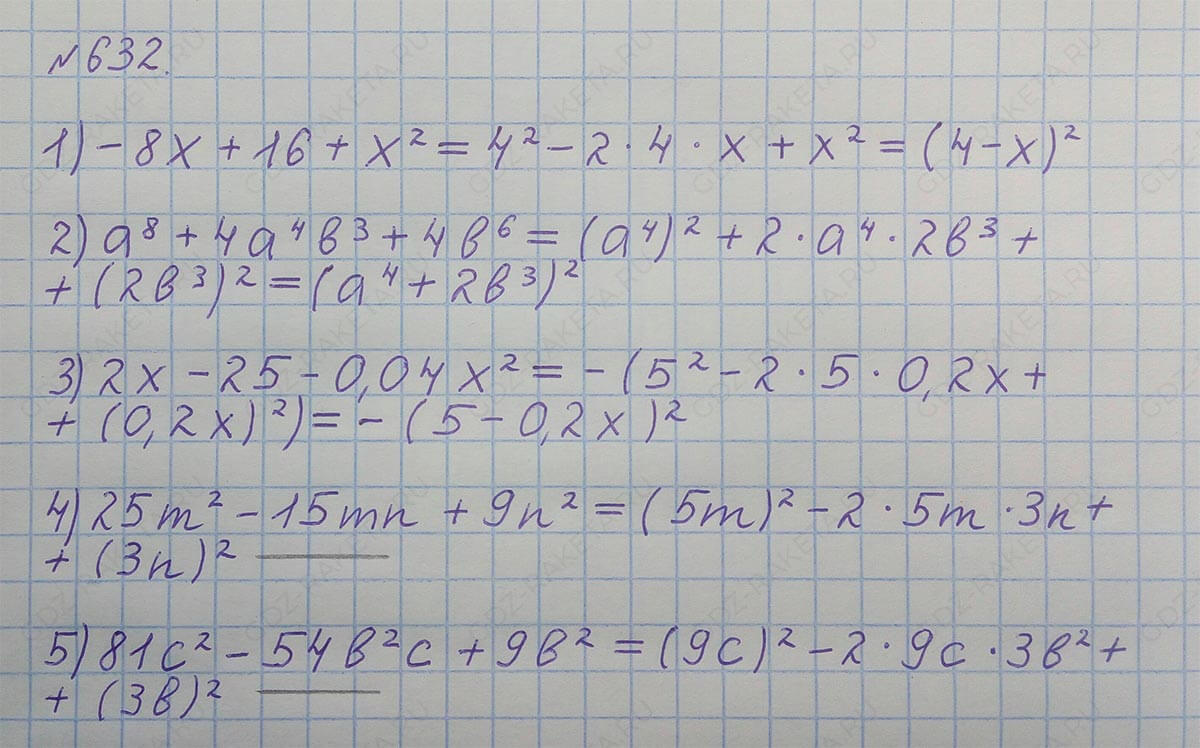 №632.
1) - 8x + 16 + x² = 4² - 2 · 4 · x + x² = (4 - x)²
2) a⁸ + 4a⁴в³ + 4в⁶ = (a⁴)² + 2 · a⁴ · 2в³ +
+ (2в³)² = (a⁴ + 2в³)²
3) 2x - 25 - 0,04x² = - (5² - 2 · 5 · 0,2x +
+ (0,2x)²) = - (5 - 0,2x)²
4) 25m² - 15mn + 9n² = (5m)² - 2 · 5m · 3n +
+ (3n)² —
5) 81c² - 54в²c + 9в² = (9c)² - 2 · 9c · 3в² +
+ (3в)² —